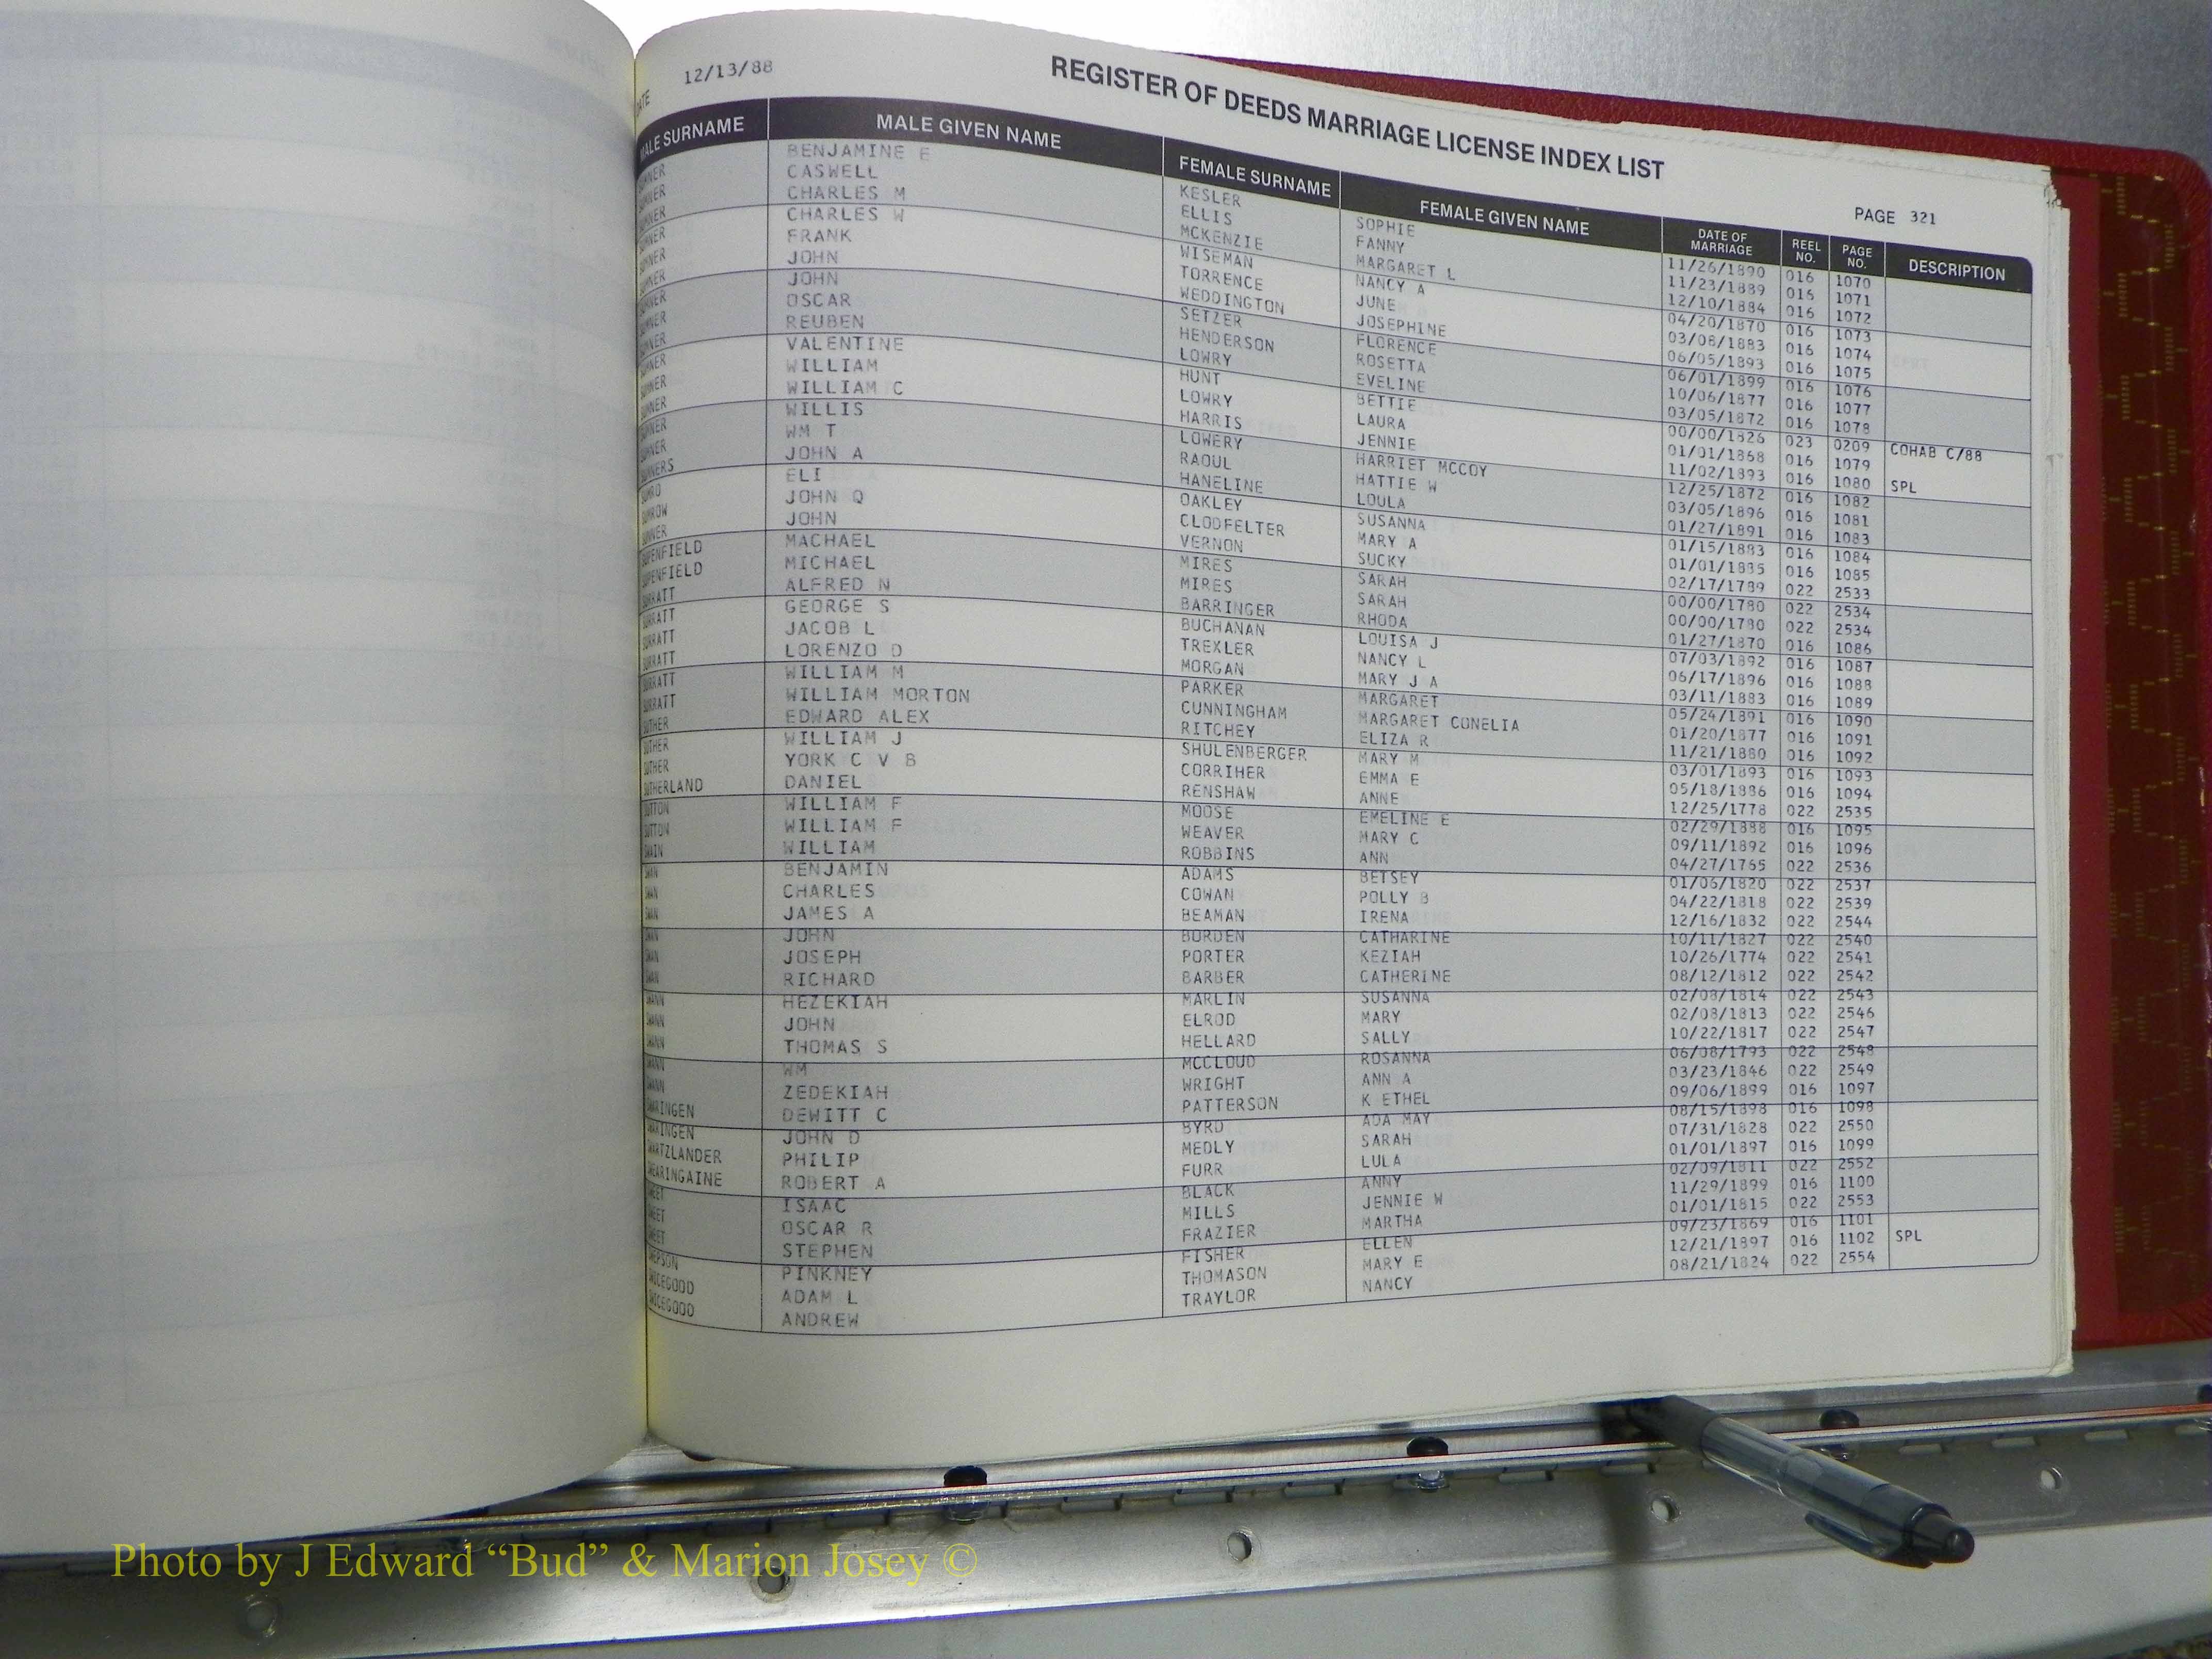 DATE 12/13/88
REGISTER OF DEEDS MARRIAGE LICENSE INDEX LIST
PAGE 321
MALE SURNAME MALE GIVEN NAME FEMALE SURNAME FEMALE GIVEN NAME DATE OF MARRIAGE REEL NO. PAGE NO. DESCRIPTION
SUMNER BENJAMINE E KESLER SOPHIE 11/26/1890 016 1070
SUMNER CASWELL ELLIS FANNY 11/23/1889 016 1071
SUMNER CHARLES M MCKENZIE MARGARET L 12/10/1884 016 1072
SUMNER CHARLES W WISEMAN NANCY A 04/20/1870 016 1073
SUMNER FRANK TORRENCE JUNE 03/08/1883 016 1074
SUMNER JOHN WEDDINGTON JOSEPHINE 06/05/1893 016 1075
SUMNER JOHN SETZER FLORENCE 06/01/1899 016 1076
SUMNER OSCAR HENDERSON ROSETTA 10/06/1877 016 1077
SUMNER REUBEN LOWRY EVELINE 03/05/1872 016 1078
SUMNER VALENTINE HUNT BETTIE 00/00/1826 023 0209 COHAB C/88
SUMNER WILLIAM LOWRY LAURA 01/01/1868 016 1079
SUMNER WILLIAM C HARRIS JENNIE 11/02/1893 016 1080 SPL
SUMNER WILLIS LOWERY HARRIET MCCOY 12/25/1872 016 1082
SUMNER WM T RAOUL HATTIE W 03/05/1896 016 1081
SUMNERS JOHN A HANELINE LOULA 01/27/1891 016 1083
SUMRO ELI OAKLEY SUSANNA 01/15/1883 016 1084
SUMROW JOHN Q CLODFELTER MARY A 01/01/1885 016 1085
SUNNER JOHN VERNON SUCKY 02/17/1789 022 2533
SUPENFIELD MACHAEL MIRES SARAH 00/00/1780 022 2534
SUPENFIELD MICHAEL MIRES SARAH 00/00/1780 022 2534
SURRATT ALFRED N BARRINGER RHODA 01/27/1870 016 1086
SURRATT GEORGE S BUCHANAN LOUISA J 07/03/1892 016 1087
SURRATT JACOB L TREXLER NANCY L 06/17/1896 016 1088
SURRATT LORENZO D MORGAN MARY J A 03/11/1883 016 1089
SURRATT WILLIAM M PARKER MARGARET 05/24/1891 016 1090
SURRATT WILLIAM MORTON CUNNINGHAM MARGARET CONELIA 01/20/1877 016 1091
SUTHER EDWARD ALEX RITCHEY ELIZA R 11/21/1880 016 1092
SUTHER WILLIAM J SHULENBERGER MARY M 03/01/1893 016 1093
SUTHER YORK C V B CORRIHER EMMA E 05/18/1886 016 1094
SUTHERLAND DANIEL RENSHAW ANNE 12/25/1778 022 2535
SUTTON WILLIAM F MOOSE EMELINE E 02/29/1888 016 1095
SUTTON WILLIAM F WEAVER MARY C 09/11/1892 016 1096
SWAIN WILLIAM ROBBINS ANN 04/27/1765 022 2536
SWAN BENJAMIN ADAMS BETSEY 01/06/1820 022 2537
SWAN CHARLES COWAN POLLY B 04/22/1818 022 2539
SWAN JAMES A BEAMAN IRENA 12/16/1832 022 2544
SWAN JOHN BORDEN CATHARINE 10/11/1827 022 2540
SWAN JOSEPH PORTER KEZIAH 10/26/1774 022 2541
SWAN RICHARD BARBER CATHERINE 08/12/1812 022 2542
SWANN HEZEKIAH MARLIN SUSANNA 02/08/1814 022 2543
SWANN JOHN ELROD MARY 02/08/1813 022 2546
SWANN THOMAS S HELLARD SALLY 10/22/1817 022 2547
SWANN WM MCCLOUD ROSANNA 06/08/1793 022 2548
SWANN ZEDEKIAH WRIGHT ANN A 03/23/1846 022 2549
SWARINGEN DEWITT C PATTERSON K ETHEL 09/06/1899 016 1097
SWARINGEN JOHN D BYRD ADA MAY 08/15/1898 016 1098
SWARTZLANDER PHILIP MEDLY SARAH 07/31/1828 022 2550
SWEARINGAINE ROBERT A FURR LULA 01/01/1897 016 1099
SWEET ISAAC BLACK ANNY 02/09/1811 022 2552
SWEET OSCAR R MILLS JENNIE W 11/29/1899 016 1100
SWEET STEPHEN FRAZIER MARTHA 01/01/1815 022 2553
SWEPSON PINKNEY FISHER ELLEN 09/23/1869 016 1101
SWICEGOOD ADAM L THOMASON MARY E 12/21/1897 016 1102 SPL
SWICEGOOD ANDREW TRAYLOR NANCY 08/21/1824 022 2554
Photo by J Edward “Bud” & Marion Josey ©